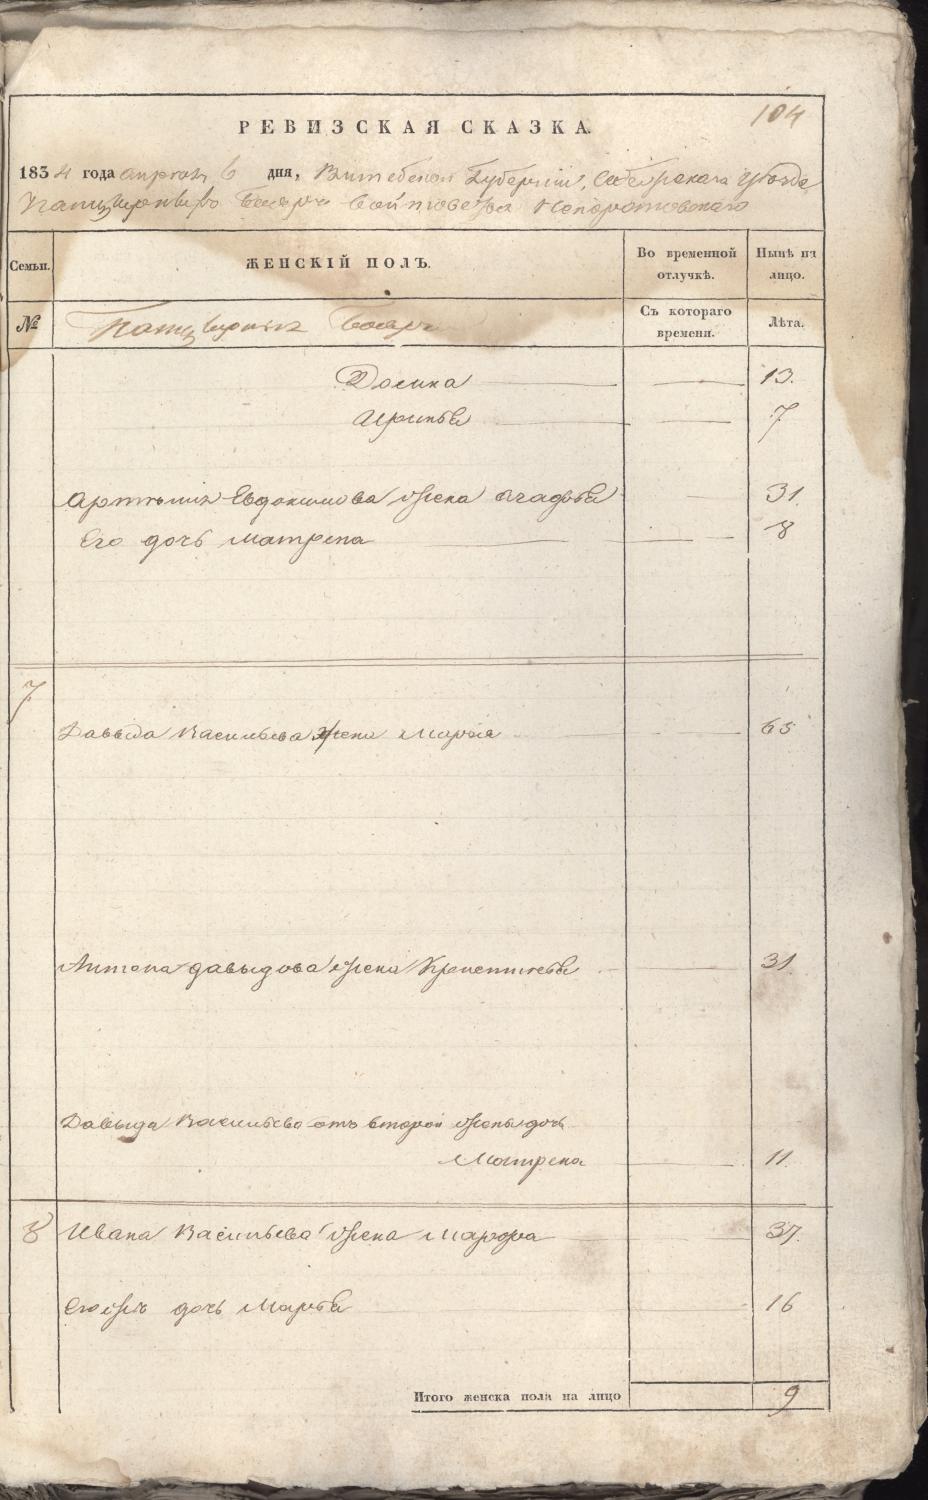 104
РЕВИЗСКАЯ СКАЗКА.
1834 года апреля 6 дня, Витебской Губернии, Себежскаго уѣзда
Панцырныхъ Бояръ войтовства Непоротовскаго
Семьи.
ЖЕНСКІЙ ПОЛЪ.
Во временной отлучкѣ.
Нынѣ на лицо.
№
Панцырныхъ Бояръ
Съ котораго времени.
Лѣта.
Досика 13.
7
Евдокимова жена 31.
Его дочь Матрена 8
7
Давыда Васильева жена Марья 65
Антона Давыдова жена 31
Давыда Васильева отъ второй жены дочь
Матрена 11.
8 Ивана Васильева жена Марфа 37.
Его же дочь Марья 16
Итого женска пола на лицо 9